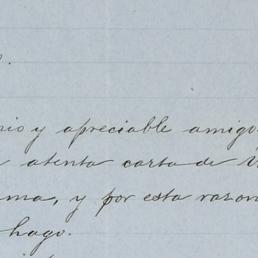 rio y apreciable amigo
atenta carta de
ma, y por esta razon
hago.